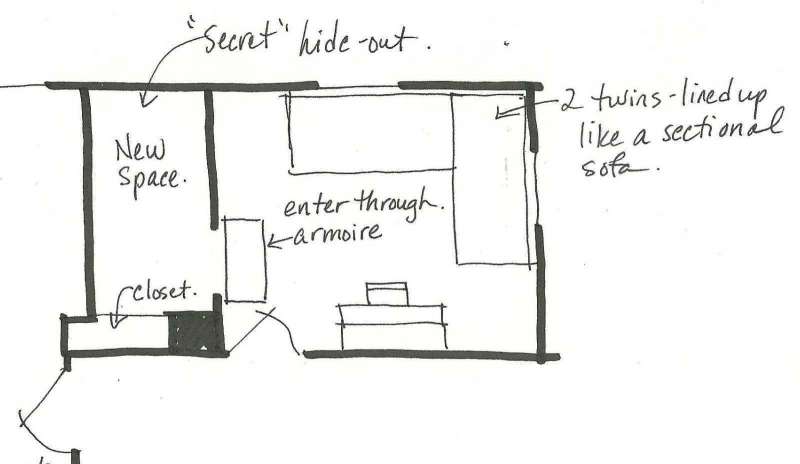 "Secret" hide-out.
2 twins-lined up
like a sectional
sofa.
New
Space.
enter through.
armoire
closet.